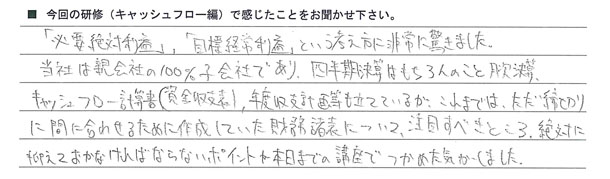 ■ 今回の研修（キャッシュフロー編）で感じたことをお聞かせ下さい。
「必要絶対利益」，「目標経常利益」という考え方に非常に驚きました。
当社は親会社の100%子会社であり、四半期決算はもちろんのこと月次決算、
キャッシュフロー計算書（資金収支表），年度収支計画等も立てているが、これまでは、ただ締切り
に間に合わせるために作成していた財務諸表について、注目すべきところ、絶対に
抑えておかなければならないポイントが本日までの講座でつかめた気がしました。